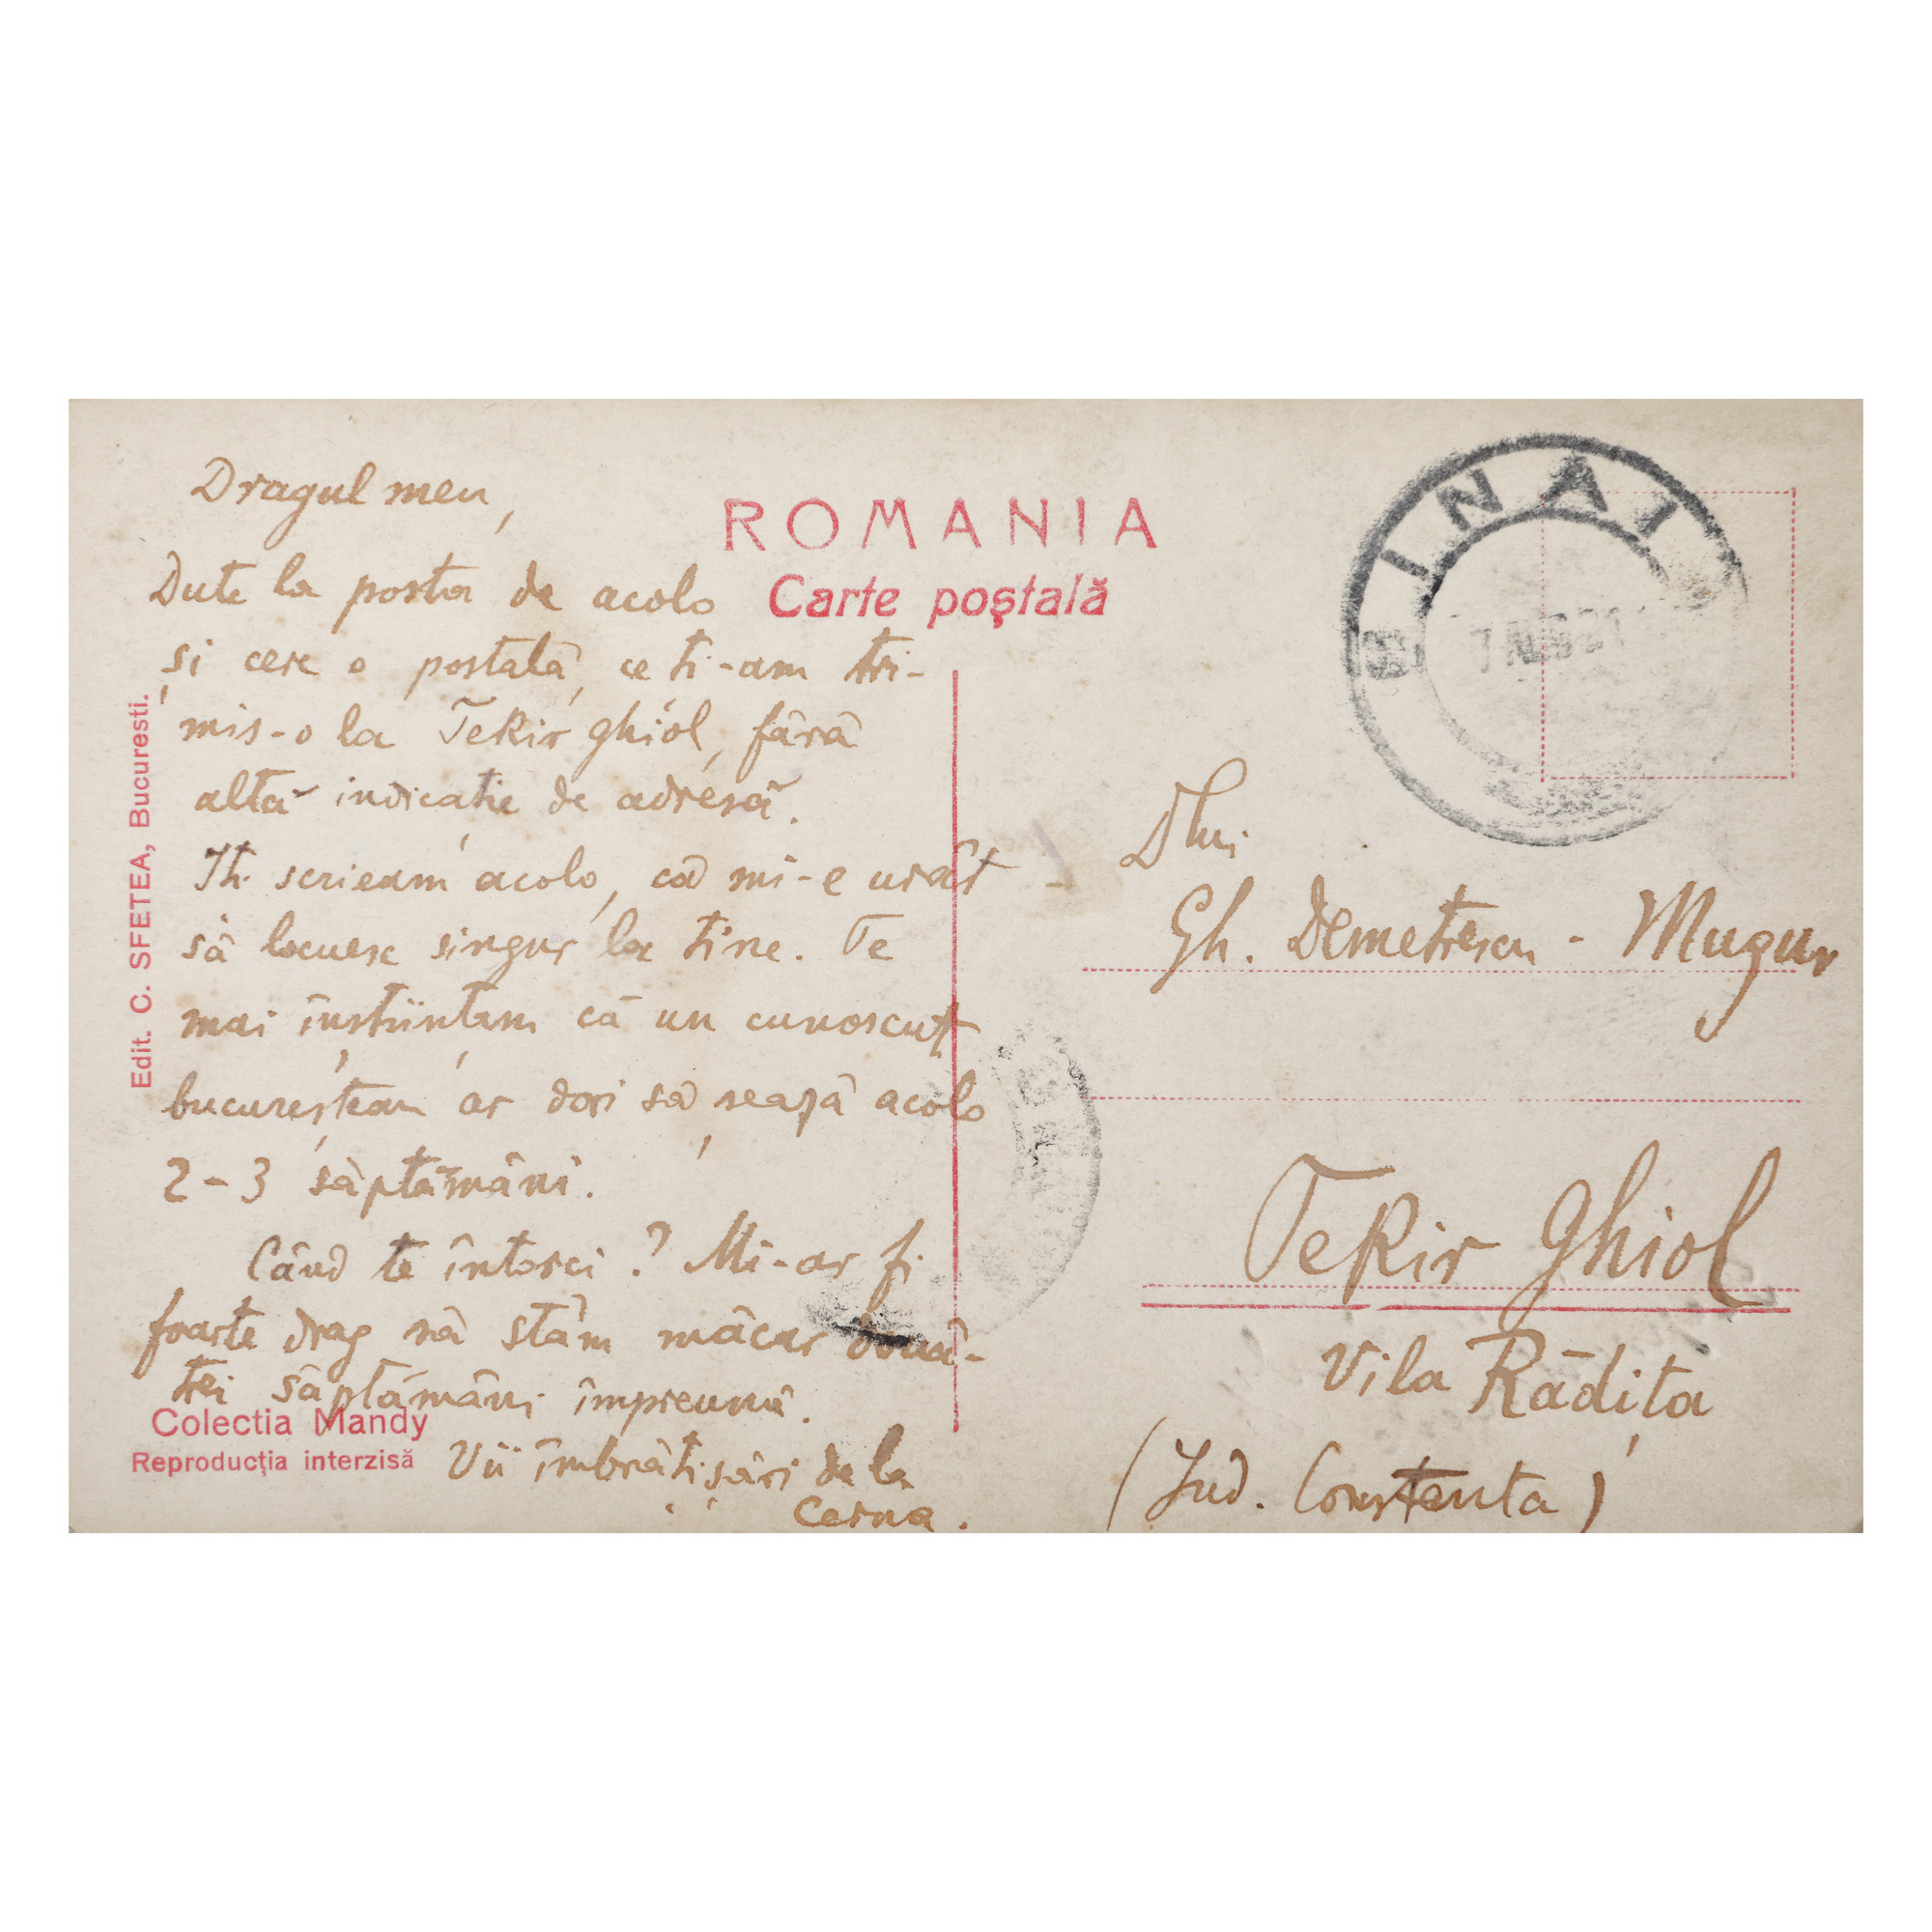 Dragul meu,
Dute la posta de acolo
și cere o postală, ce ti-am tri-
mis-o la Tekir ghiol, fără
altă indicație de adresă.
Iti scrieam acolo, că mi-e urât
să locuesc singur la tine. Te
mai înștiințam că un cunoscut
bucureștean ar dori să șează acolo
2-3 săptămâni.
Când te întorci? Mi-ar fi
foarte drag să stăm măcar două-
trei săptămâni împreună.
Vii îmbrățișări de la
Cerna.
ROMANIA
Carte poştală
Edit. C. SFETEA, Bucuresti.
Colectia Mandy
Reproducția interzisă
SINAIA
Dlui
Gh. Demetrescu - Mugur
Tekir Ghiol
Vila Rădița
(Jud. Constanta)